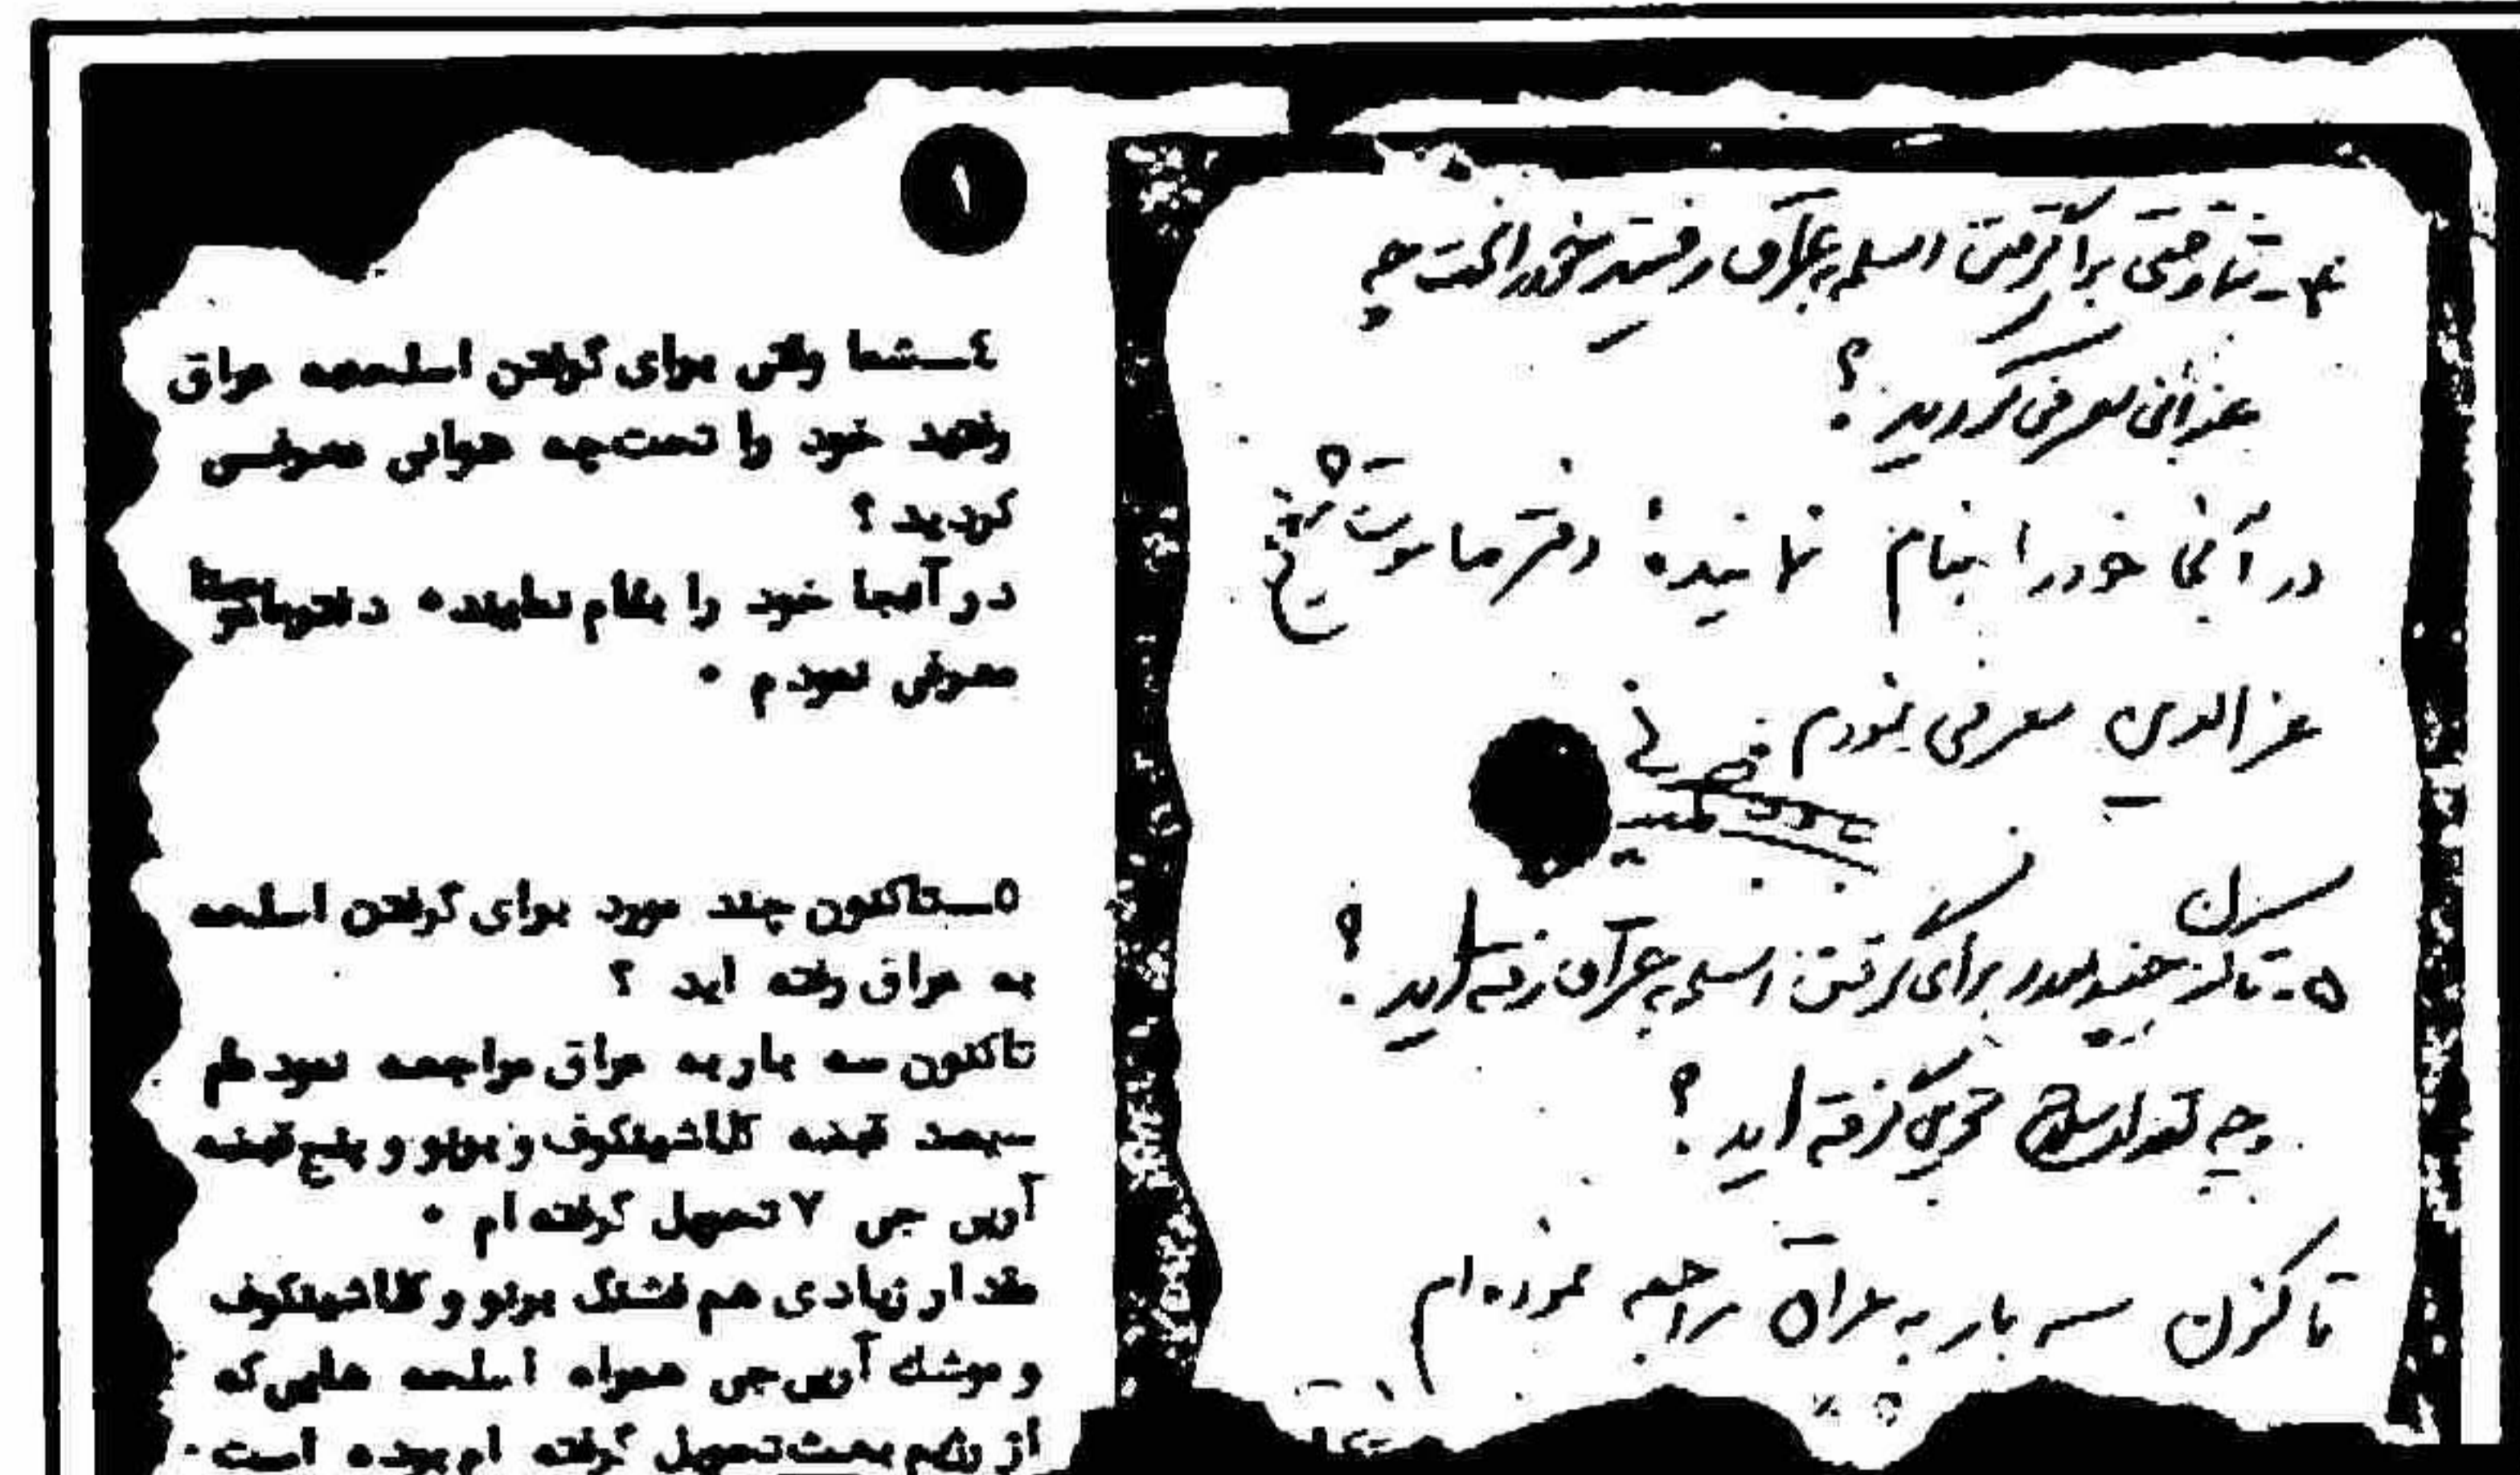 ۱
٤ــشما وقتی برای گرفتن اسلحه عراق
رفتید خود را تحت چه عنوانی معرفی
کردید ؟
در آنجا خود را بنام نماینده دفتر
معرفی نمودم ۰
۵ــتاکنون چند مورد برای گرفتن اسلحه
به عراق رفته اید ؟
تاکنون سه بار به عراق مراجعه نمودهام
سیصد قبضه کلاشینکوف و برنو و پنج قبضه
آرپی جی ۷ تحویل گرفته ام ۰
مقدار زیادی هم فشنگ برنو و کلاشینکوف
و موشک آرپی جی همراه اسلحه هایی که
از رژیم بعث تحویل گرفته ام بوده است ۰
۴- شما وقتی برای گرفتن اسلحه به عراق رفتید خود را تحت چه
عنوانی معرفی کردید ؟
در آنجا خود را بنام نماینده دفتر ماموستا شیخ
عزالدین معرفی نمودم
۵- تاکنون چند مورد برای گرفتن اسلحه به عراق رفته اید ؟
و چه تعداد سلاح تحویل گرفته اید ؟
تاکنون سه بار به عراق مراجعه نموده ام